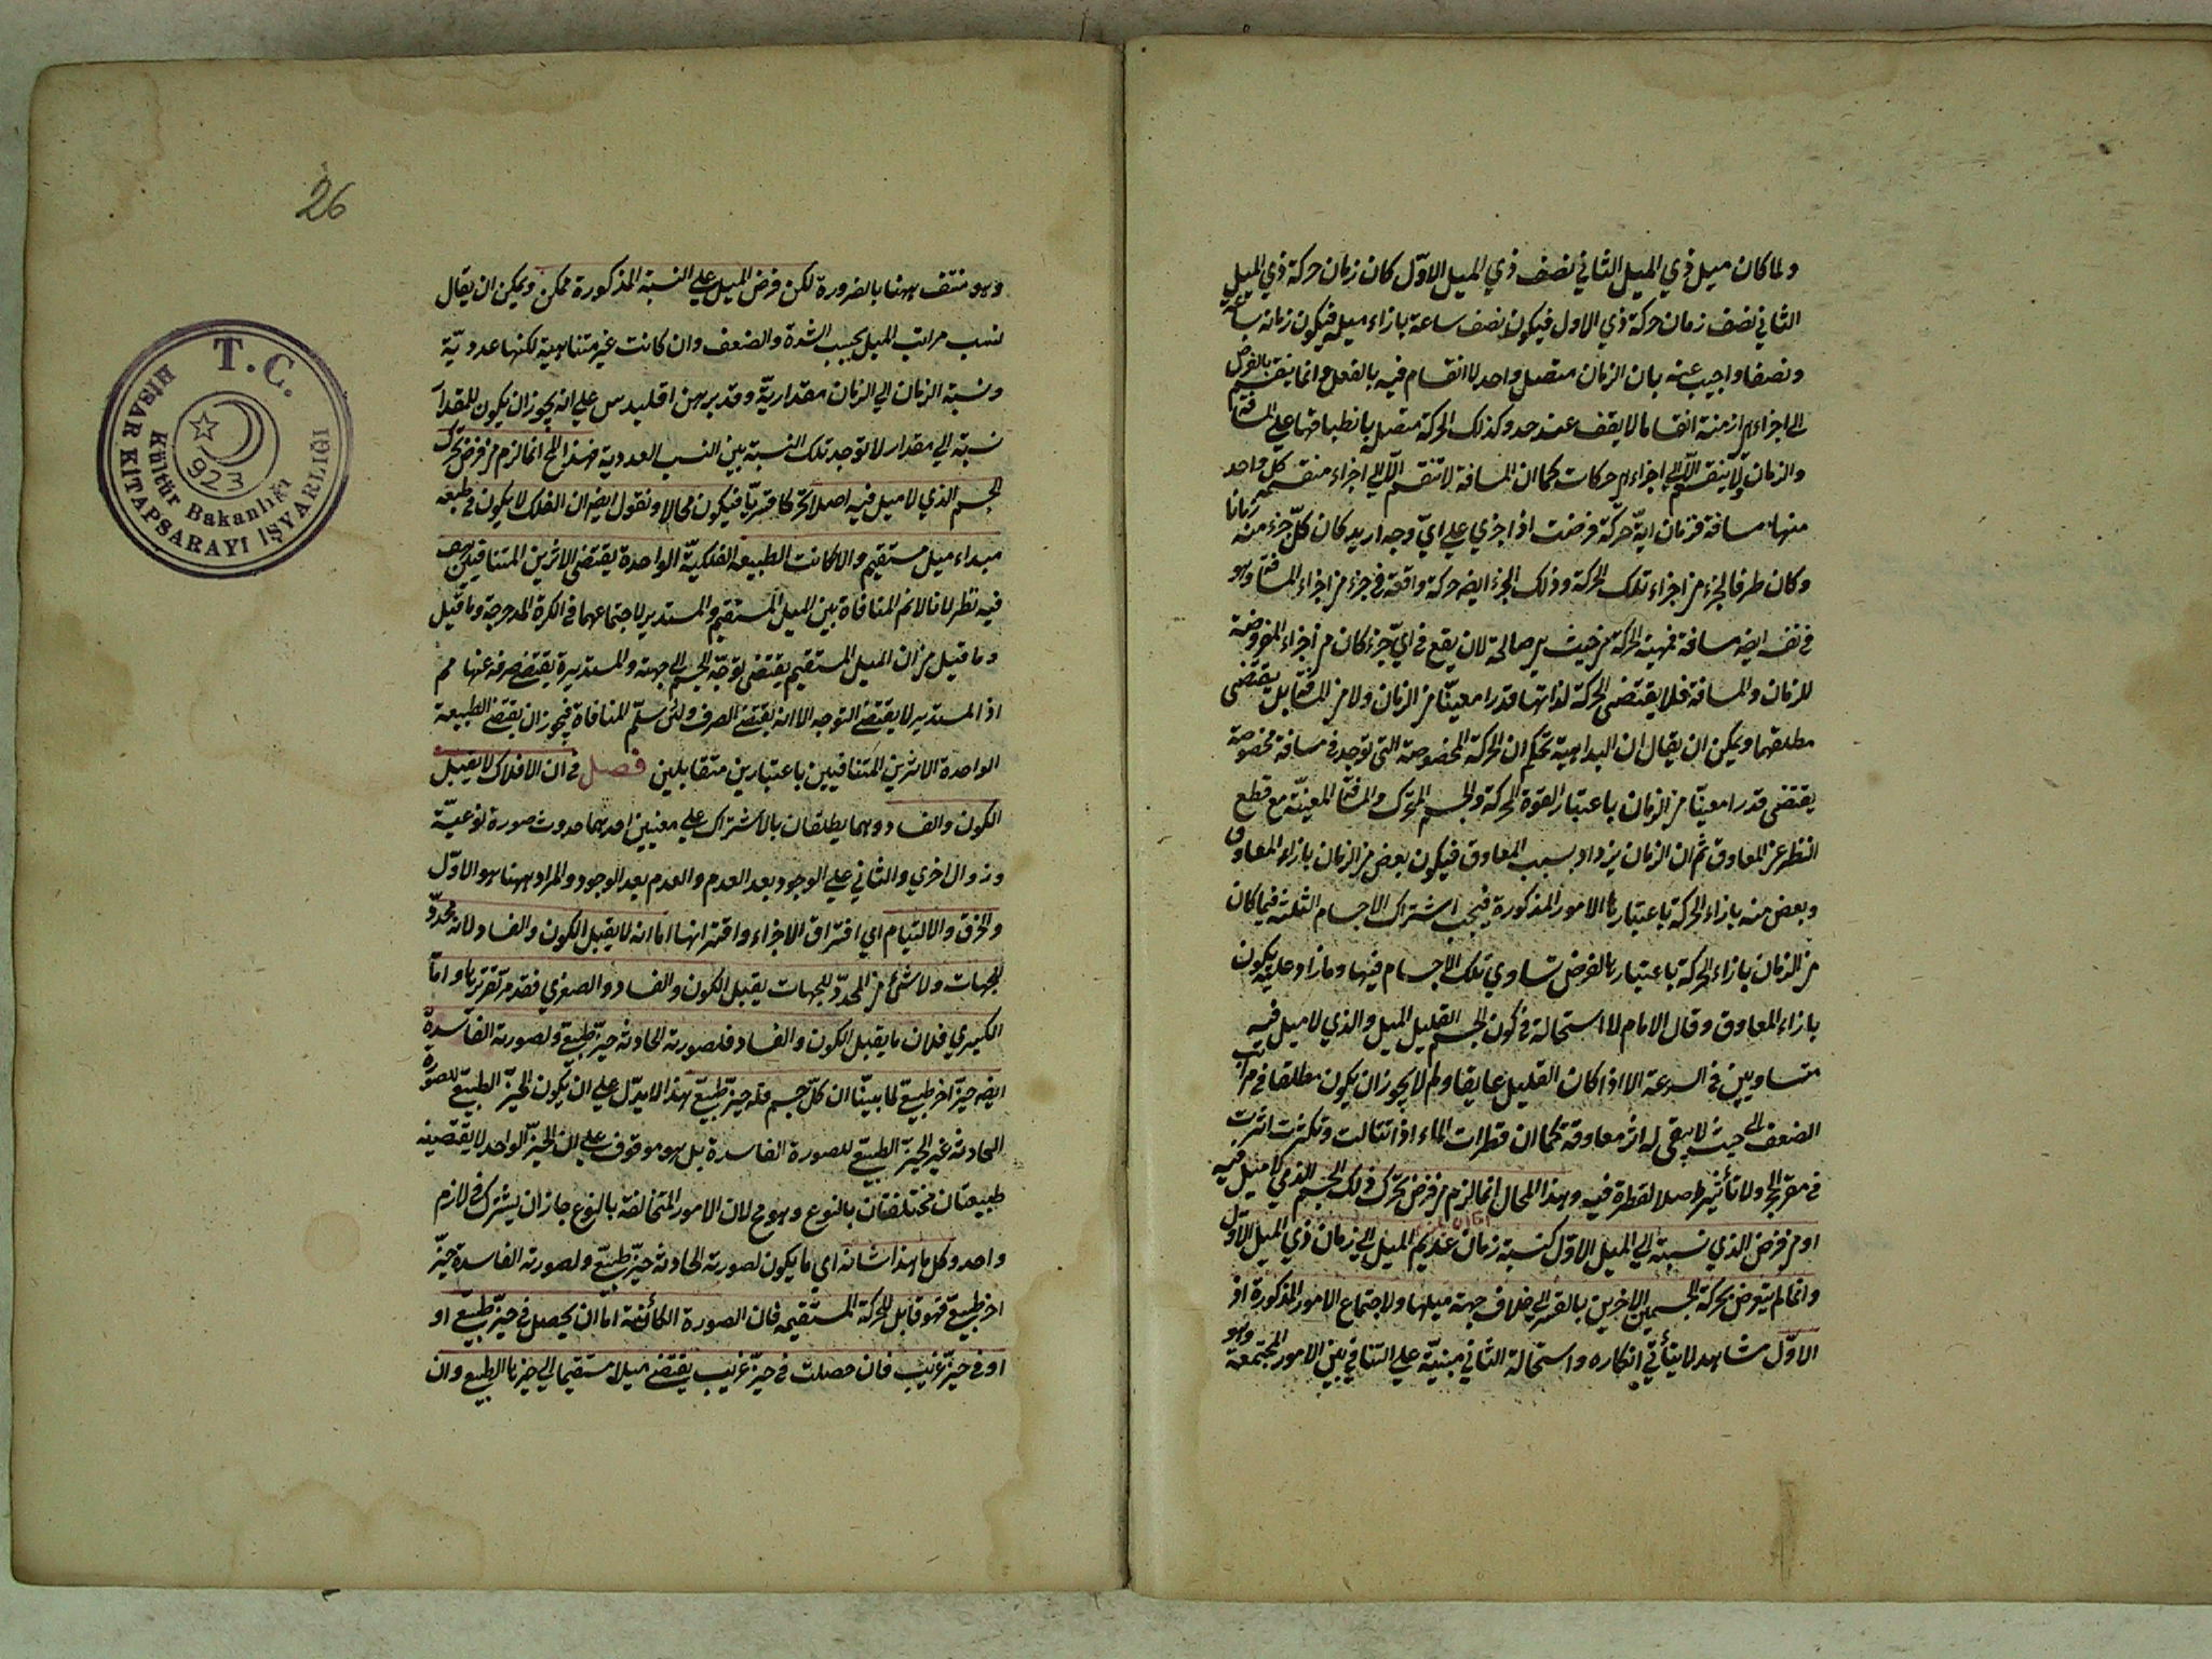 ولما كان ميل ذي الميل الثاني نصف ذي الميل الاوّل كان زمان حركة ذي الميل
الثاني نصف زمان حركة ذي الاول فيكون نصف ساعة بازاء ميله فيكون زمانه ساعة
ونصفا واجيب عنه بان الزمان متصل واحد لا انقسام فيه بالفعل وانما ينقسم بالفرض
الى اجزاء هي ازمنة انقساما لا يقف عند حد وكذلك الحركة متصلة بانطباقها على المسافة
والزمان ولا ينقسم الا الى اجزاء هي حركات كما ان المسافة لا تنقسم الا الى اجزاء منقسمة كل واحد
منها مسافة فزمان ايّة حركة فرضت اذا جزي على ايّ وجه اريد كان كلّ جزء منه زمانا
وكان ظرفا لجزء من اجزاء تلك الحركة وذلك الجزء ايضا حركة واقعة في جزء من اجزاء المسافة وهو
في نفسه ايضا مسافة فمهية الحركة من حيث هي صالحة لان يقع في ايّ جزء كان من اجزاء المفروضة
للزمان والمسافة فلا يقتضى الحركة لذاتها قدرا معيّنا من الزمان ولا من المسافة بل يقتضى
مطلقهما ويمكن ان يقال ان البداهية تحكم ان الحركة المخصوصة التى توجد في مسافة مخصوصة
يقتضى قدرا معيّنا من الزمان باعتبار القوة المحركة والجسم المتحرك والمسافة المعينّة مع قطع
النظر عن المعاوق ثم ان الزمان يزداد بسبب المعاوق فيكون بعض من الزمان بازاء المعاوق
وبعض منه بازاء الحركة باعتبار تلك الامور المذكورة فيجب اشتراك الاجسام الثلثة فيما كان
من الزمان بازاء الحركة باعتبارها لفرض تساوي تلك الاجسام فيها وما زاد عليه يكون
بازاء المعاوق وقال الامام لا استحالة في كون الجسم القليل الميل والذي لا ميل فيه
متساويين في السرعة الا اذا كان القليل عايقا ولم لا يجوز ان يكون مطلقا في مراتب
الضعف الى حيث لا يبقى له اثر معاوقة كما ان قطرات الماء اذا تتالت وتكثرت اثرت
في مقعر الحجر ولا تأثير اصلا لقطرة فيه وهذا المحال انما لزم من فرض تحرّك ذلك الجسم الذي لا ميل فيه
او من فرض الذي نسبته الى الميل الاوّل كنسبة زمان عديم الميل الى زمان ذي الميل الاوّل
وانما لم يتعرض بحركة الجسمين الاخرين بالقسر الى خلاف جهة ميلها ولاجتماع الامور المذكورة اذ
الاوّل مشاهد لا يتأتّي انكاره واستحالة الثاني مبنيّة على التنافي بين الامور المجتمعة وهو
26
وهو منتف ههنا بالضرورة لكن فرض الميل على النسبة المذكورة ممكن ويمكن ان يقال
نسب مراتب الميل بحسب الشدة والضعف وان كانت غير متناهية لكنها عدديّة
ونسبة الزمان الى الزمان مقداريّة وقد برهن اقليدس على انه يجوز ان يكون للمقدار
نسبة الى مقدار لا توجد تلك النسبة بين النسب العددية فهذا المحال انما لزم من فرض تحرك
الجسم الذي لا ميل فيه اصلا تحركا قسريّا فيكون محالا ونقول ايضا ان الفلك لا يكون في طبعه
مبداء ميل مستقيم والا لكانت الطبيعة الفلكيّة الواحدة يقتضى الاثرين المتنافيين هف
فيه نظر لانا لا نم المنافاة بين الميل المستقيم والمستدير لاجتماعهما في الكرة المدحرجة وما قيل
وما قيل من ان الميل المستقيم يقتضى توجّه الجسم الى جهته والمستديرة يقتضي صرفه عنها مم
اذ المستدير لا يقتضي التوجه الا انه يقتضي الصرف ولئن سلّم المنافاة فيجوز ان يقتضي الطبيعة
الواحدة الاثرين المتنافيين باعتبارين متقابلين فصل في ان الافلاك لا يقبل
الكون والفساد وهما يطلقان بالاشتراك على معنيين احدهما حدوث صورة نوعيّة
وزوال اخري والثاني على الوجود بعد العدم والعدم بعد الوجود والمراد ههنا هو الاوّل
والخرق والالتيام اي افتراق الاجزاء واقترانها اما انه لا يقبل الكون والفساد لانه محدّد
للجهات ولا شئ من المحدّد للجهات يقبل الكون والفساد والصغري فقد مرّ تقريرها وامّا
الكبري فلان ما يقبل الكون والفساد فلصورته الحادثة حيّز طبيعيّ ولصورته الفاسدة
ايضا حيّز اخر طبيعيّ لما بيّنّا ان كلّ جسم فله حيّز طبيعيّ هذا لا يدّل على ان يكون الحيّز الطبيعيّ للصورة
الحادثة غير الحيّز الطبيعيّ للصورة الفاسدة بل هو موقوف على ان الحيّز الواحد لا يقتضيه
طبيعتان مختلفتان بالنوع وهو مم لان الامور المتخالفة بالنوع جاز ان يشترك في لازم
واحد وكل ما هذا شانه اي ما يكون لصورته الحادثة حيّز طبيعيّ ولصورته الفاسدة حيّز
اخر طبيعيّ فهو قابل للحركة المستقيمة فان الصورة الكائنة امّا ان يحصل في حيّز طبيعيّ او
او في حيّز غريب فان حصلت في حيّز غريب يقتضي ميلا مستقيما الى حيزها الطبيعي وان
T.C.
HİSAR KİTAPSARAYI İŞYARLIĞI
Kültür Bakanlığı
923